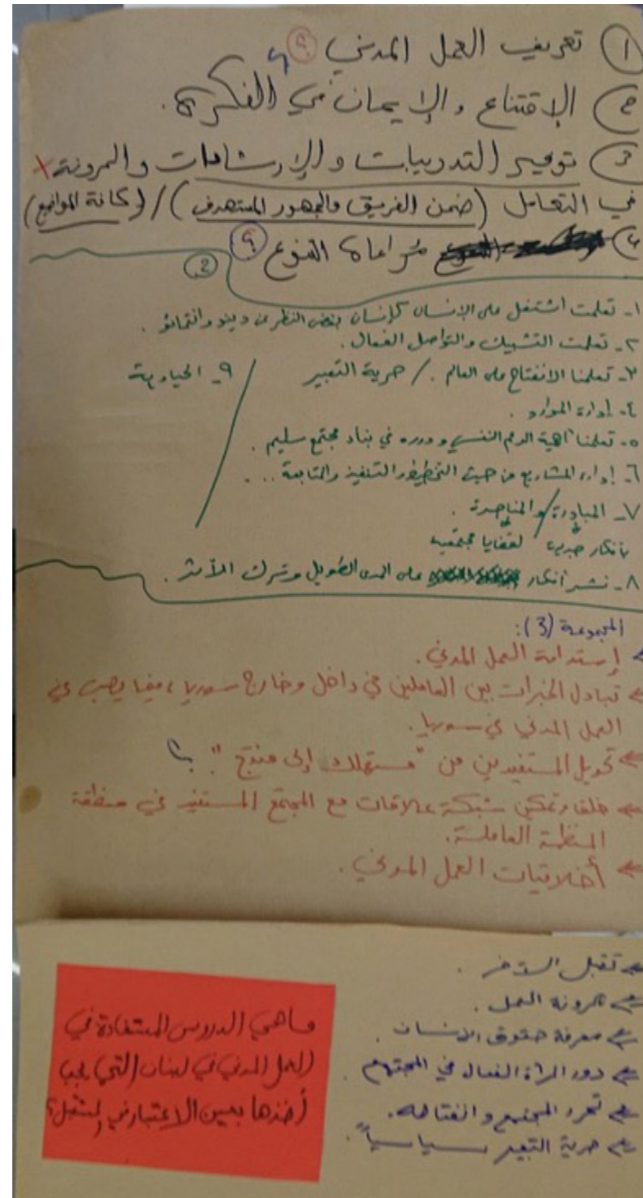 ① تعريف العمل المدني ؟
② الإقتناع والإيمان في الفكرة.
③ توفير التدريبات والإرشادات والمرونة
في التعامل (ضمن الفريق والجمهور المستهدف) / (وكافة المواضيع)
④ مراعاة التنوع ؟
2.
١- تعلمت اشتغل على الإنسان كإنسان بغض النظر عن دينو وانتمائو.
٢- تعلمت التشبيك والتواصل الفعال.
٣- تعلمنا الانفتاح على العالم. / حرية التعبير
٩- الحيادية
٤- إدارة الموارد.
٥- تعلمنا أهمية الدعم النفسي ودوره في بناء مجتمع سليم.
٦- إدارة المشاريع من حيث التخطيط والتنفيذ والمتابعة...
٧- المبادرة / والمناصرة.
بأفكار جديدة لقضايا مجتمعية
٨- نشر أفكار على المدى الطويل وترك الأثر.
المجموعة (3):
إستدامة العمل المدني.
تبادل الخبرات بين العاملين في داخل وخارج سوريا، فيما يصب في
العمل المدني في سوريا.
تحويل المستفيدين من "مستهلك إلى منتج". ؟
خلق شبكة علاقات مع المجتمع المستفيد في منطقة
المنظمة العاملة.
أخلاقيات العمل المدني.
تقبل الآخر.
مرونة العمل.
معرفة حقوق الانسان.
دور المرأة الفعال في المجتمع.
تحرر المجتمع وانفتاحه.
حرية التعبير سياسياً.
ما هي الدروس المستفادة في
العمل المدني في لبنان التي يجب
أخذها بعين الاعتبار في المستقبل؟